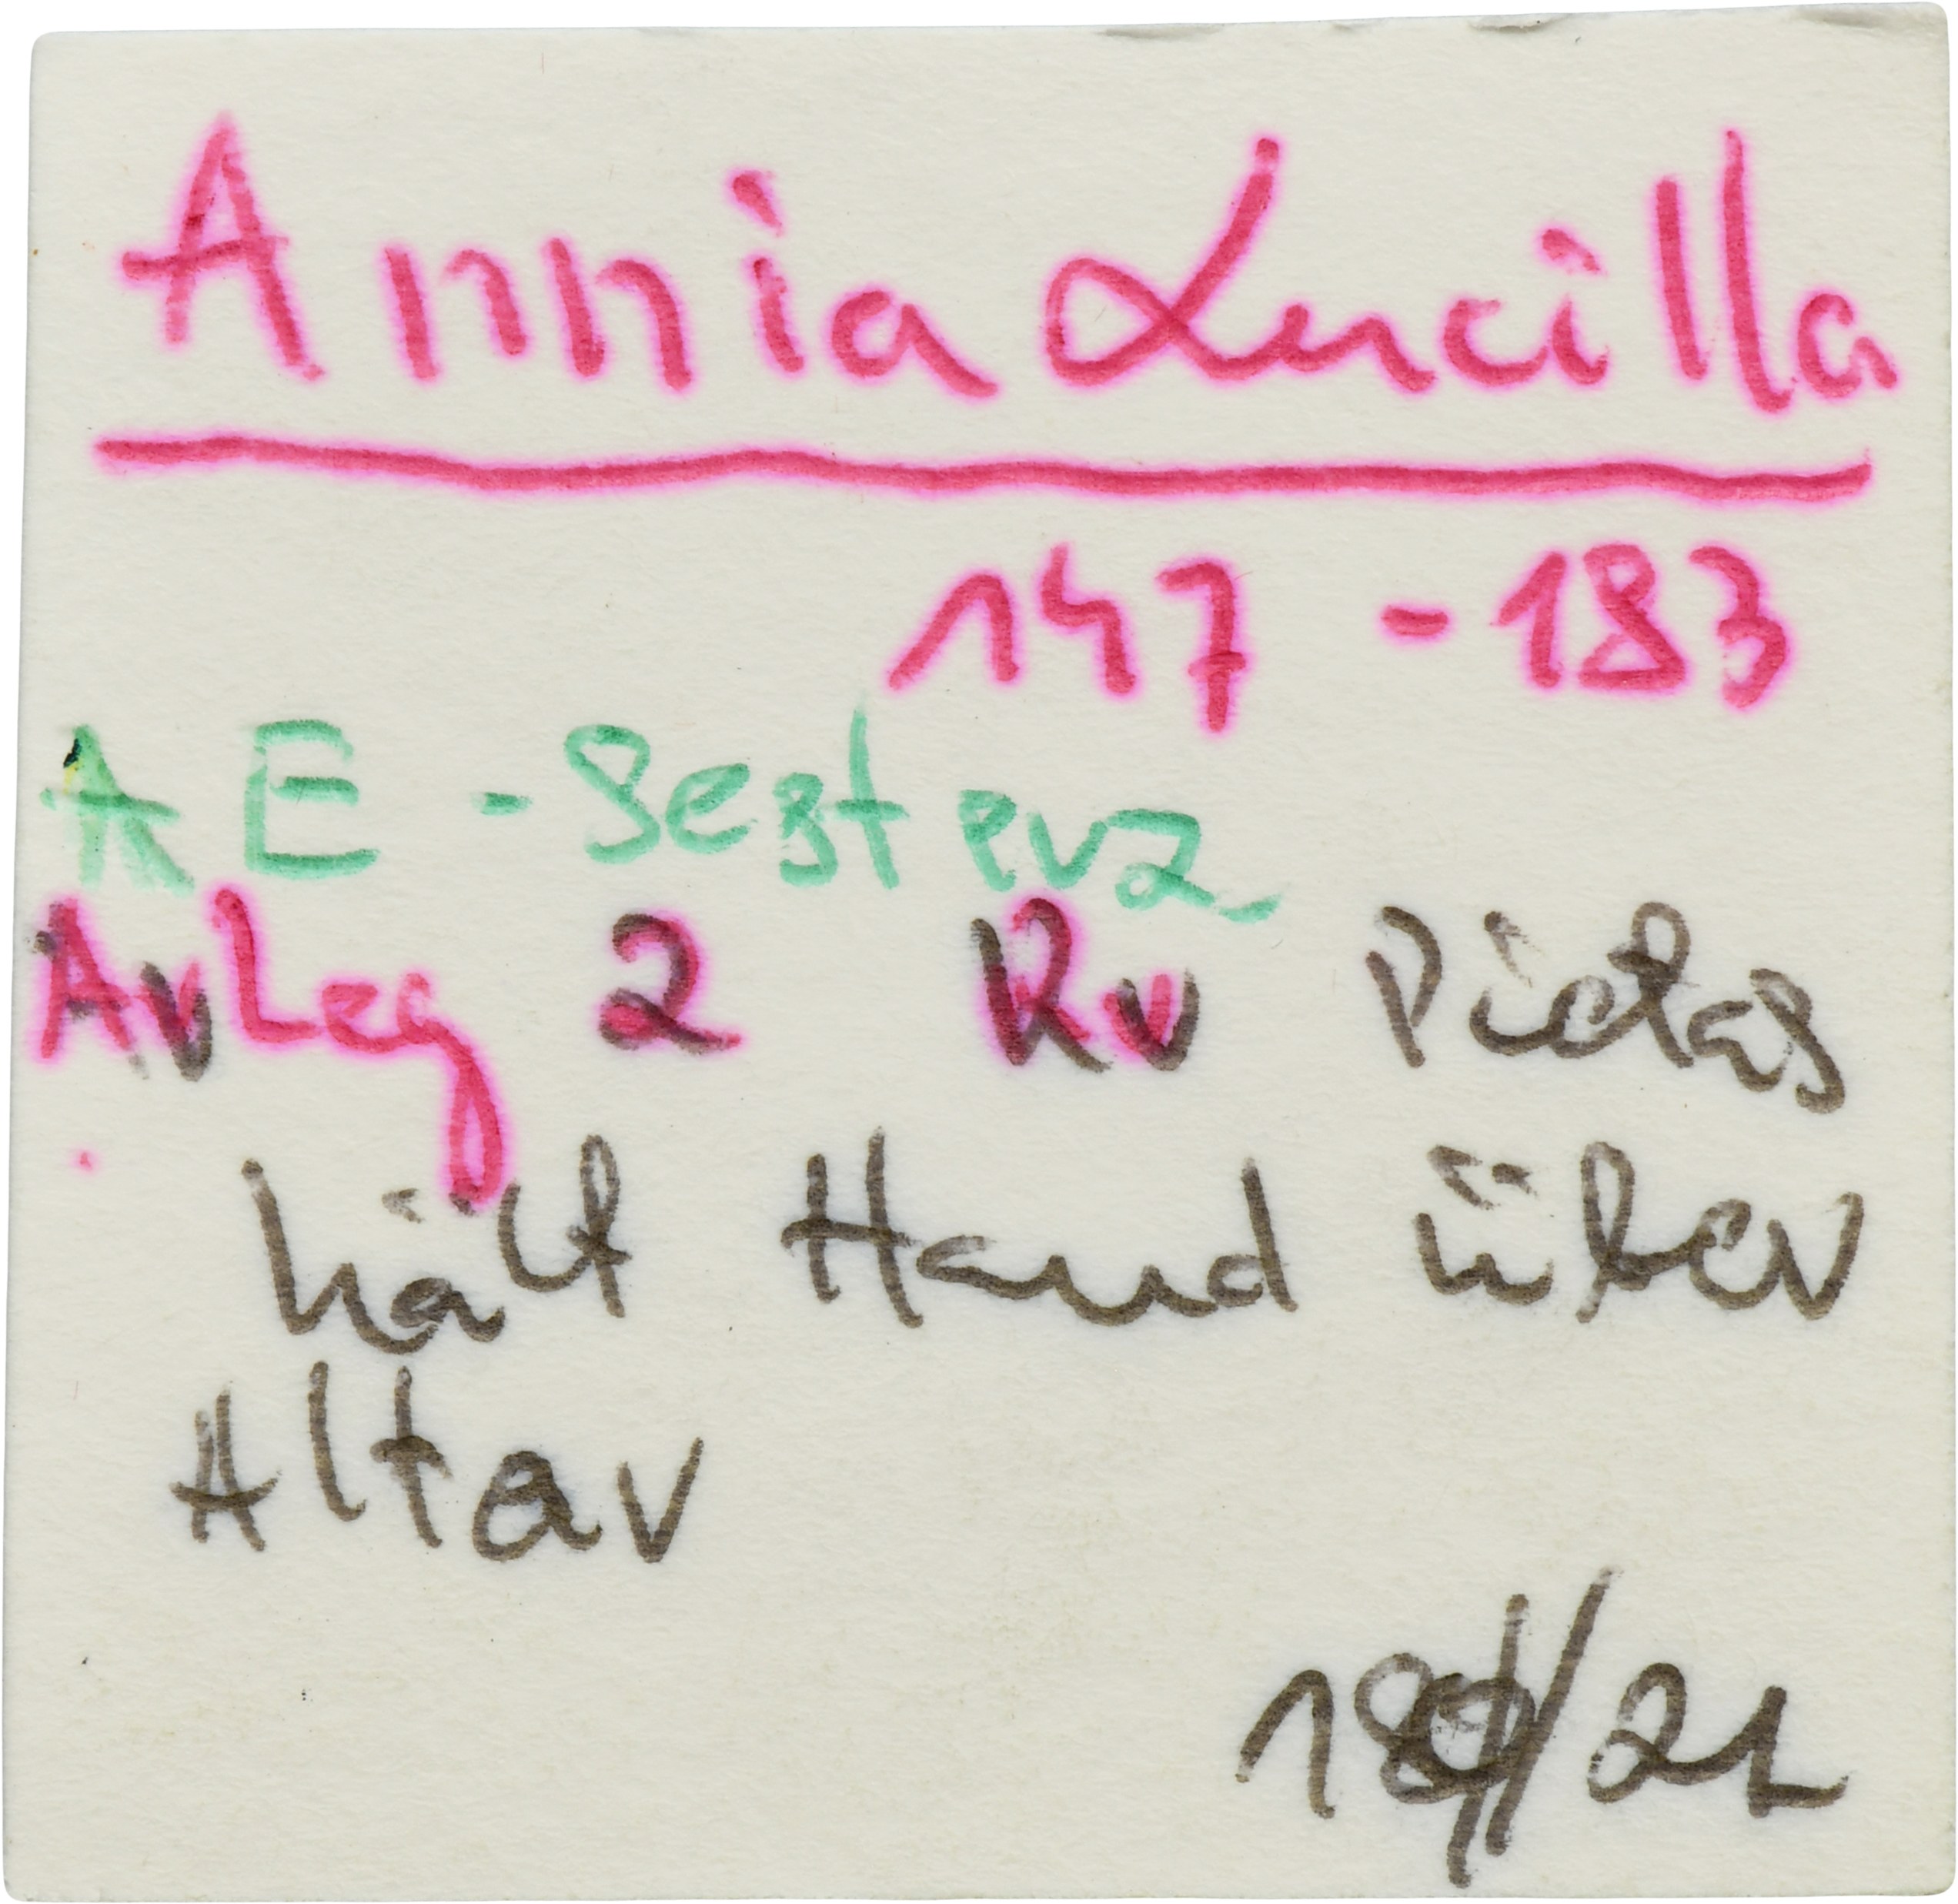 Annia Lucilla
147 - 183
AE - Sesterz
Av Leg 2 Rv Pietas
hält Hand über
Altar